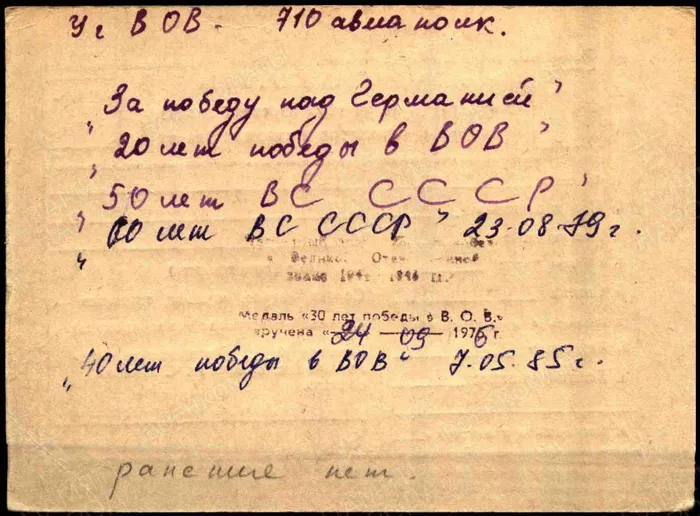 Уг ВОВ - 710 авиаполк.
„За победу над Германией"
„20 лет победы в ВОВ"
„50 лет ВС СССР"
„60 лет ВС СССР" 23-08-79 г.
Велико Оте
Медаль «30 лет победы в В. О. В.»
вручена «24 09 1976 г.
„40 лет победы в ВОВ" 7.05.85 г.
ранение нет.